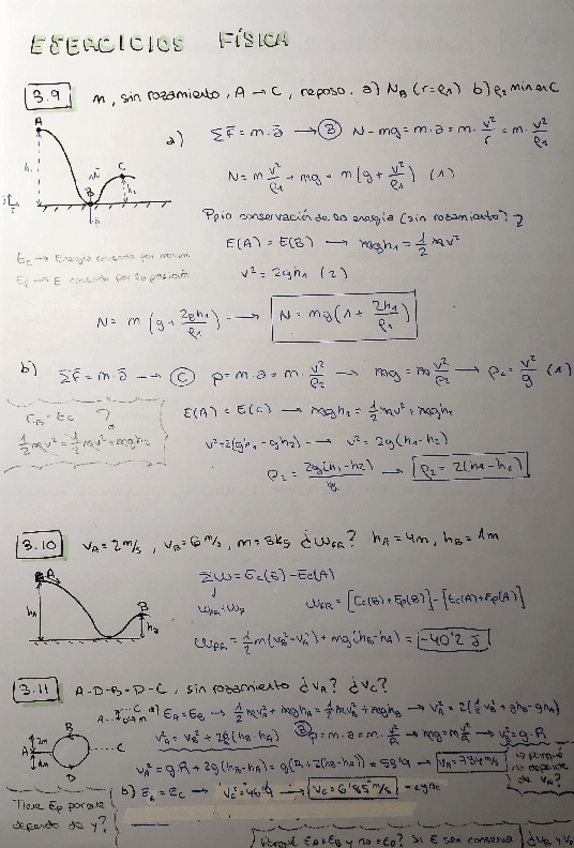 EJERCICIOS FÍSICA
3.9 m, sin rozamiento, A → C, reposo. a) N_B (r=ρ1) b) ρ2 min en C
A
h1
N
C
B
h2
a) ΣF̄ = m·ā → (B) N-mg = m·a = m·v²/r = m·v²/ρ1
N = m v²/ρ1 + mg = m(g + v²/ρ1) (1)
Ppio conservación de la energía (sin rozamiento)?
E(A) = E(B) → mgh1 = 1/2 mv²
v² = 2gh1 (2)
Ep → E causado por la posición
N = m (g + 2gh1/ρ1) → N = mg(1 + 2h1/ρ1)
b) ΣF̄ = m·ā → (C) p = m·a = m·v²/ρ2 → mg = m v²/ρ2 → ρ2 = v²/g (1)
E_B = E_C ?
1/2 mv² = 1/2 mv² + mgh2
E(A) = E(C) → mgh1 = 1/2 mv² + mgh2
v² = 2(gh1 - gh2) → v² = 2g(h1-h2)
ρ2 = 2g(h1-h2)/g → ρ2 = 2(h1-h2)
3.10 v_A = 2 m/s, v_B = 6 m/s, m = 3kg ¿W_FR? h_A = 4m, h_B = 1m
A
h_A
B
h_B
ΣW = Ec(B) - Ec(A)
W_FR = [Ec(B) + Ep(B)] - [Ec(A) + Ep(A)]
W_FR = 1/2 m(v_B² - v_A²) + mg(h_B - h_A) = -40'2 J
3.11 A-D-B-D-C, sin rozamiento ¿v_A? ¿v_C?
a) E_A = E_B → 1/2 mv_A² + mgh_A = 1/2 mv_B² + mgh_B → v_A² = 2(1/2 v_B² + gh_B - gh_A)
v_A² = v_B² + 2g(h_B - h_A) (B) p = m·a = m·v²/R → mg = m v²/R → v_B² = g·R
v_A² = g·R + 2g(h_B - h_A) = g(R + 2(h_B - h_A)) = 58'9
→ ¿porqué no depende de v_A?
B
2m
A
C
D
b) E_A = E_C → v_C² = 46'9 → v_C = 6'85 m/s
Tiene Ep porque depende de y?
Porqué E_A = E_B y no = E_D? Si E se conserva